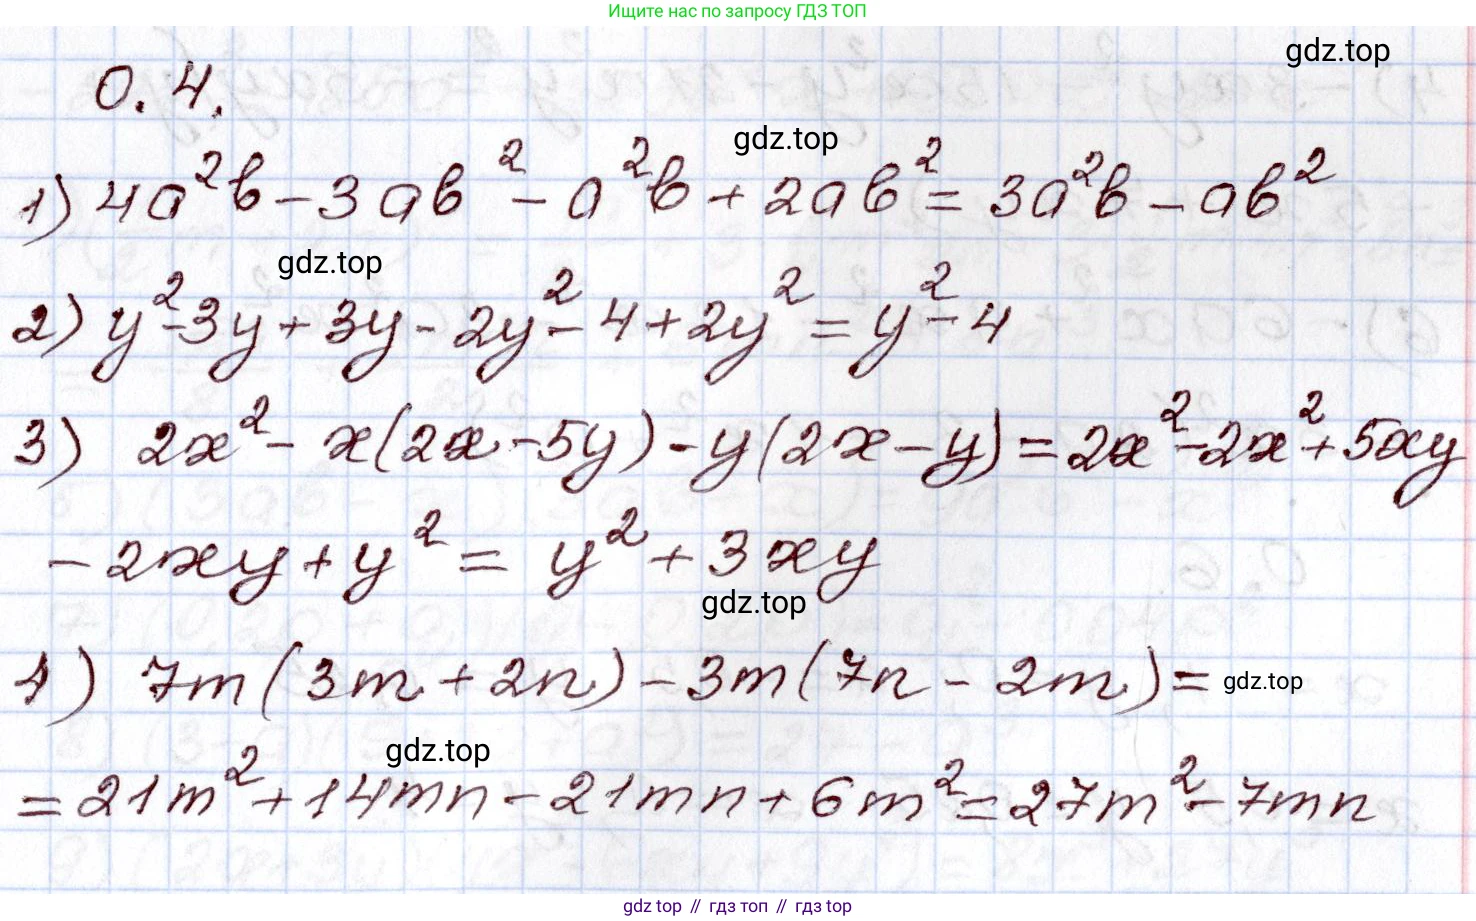 Ищите нас по запросу ГДЗ ТОП
gdz.top
0.4.
gdz.top
1) 4a²b - 3ab² - a²b + 2ab² = 3a²b - ab²
gdz.top
2) y² - 3y + 3y - 2y² - 4 + 2y² = y² - 4
3) 2x² - x(2x - 5y) - y(2x - y) = 2x² - 2x² + 5xy
- 2xy + y² = y² + 3xy
gdz.top
4) 7m(3m + 2n) - 3m(7n - 2m) =
gdz.top
gdz.top
= 21m² + 14mn - 21mn + 6m² = 27m² - 7mn
gdz top // гдз топ // гдз top